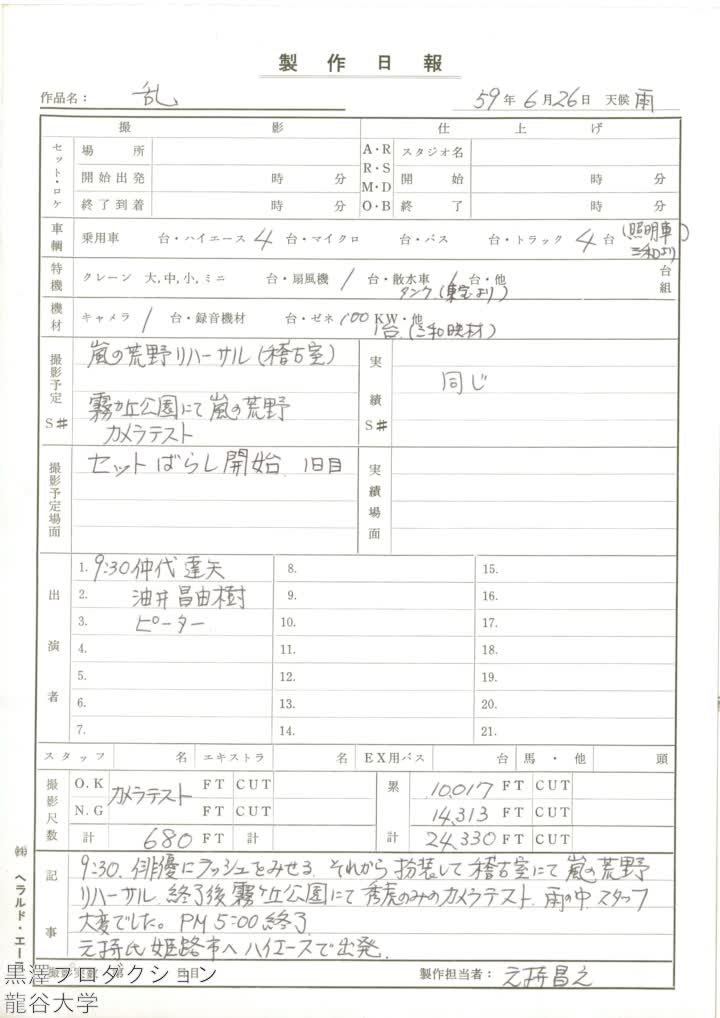 製作日報
作品名： 乱
59年 6月26日 天候 雨
撮影 仕上げ
セット・ロケ 場所 A・R スタジオ名
開始出発 時 分 R・S 開始 時 分
M・D
終了到着 時 分 O・B 終了 時 分
車輌 乗用車 台・ハイエース 4 台・マイクロ 台・バス 台・トラック 4 台 (照明車)
三和より
特機 クレーン 大,中,小,ミニ 台・扇風機 1 台・散水車 1 台・他 台組
タンク(東宝より)
機材 キャメラ 1 台・録音機材 台・ゼネ 100 KW・他
1台(三和映材)
撮影予定 S# 嵐の荒野リハーサル(稽古室) 実績 S#
同じ
霧ヶ丘公園にて嵐の荒野
カメラテスト
撮影予定場面 セットばらし開始 1日目 実績場面
出演者
1. 9:30 仲代達矢 8. 15.
2. 油井昌由樹 9. 16.
3. ピーター 10. 17.
4. 11. 18.
5. 12. 19.
6. 13. 20.
7. 14. 21.
スタッフ 名 エキストラ 名 EX用バス 台 馬・他 頭
撮影尺数 O.K カメラテスト FT CUT 累計 10,017 FT CUT
N.G FT CUT 14,313 FT CUT
計 680 FT 計 24,330 FT CUT
記事
9:30. 俳優にラッシュをみせる それから扮装して稽古室にて嵐の荒野
リハーサル 終了後霧ヶ丘公園にて秀虎のみのカメラテスト. 雨の中スタッフ
大変でした。PM 5:00 終了
元持氏姫路市へハイエースで出発.
製作担当者： 元持昌之
㈱ ヘラルド・エース
黒澤プロダクション
龍谷大学